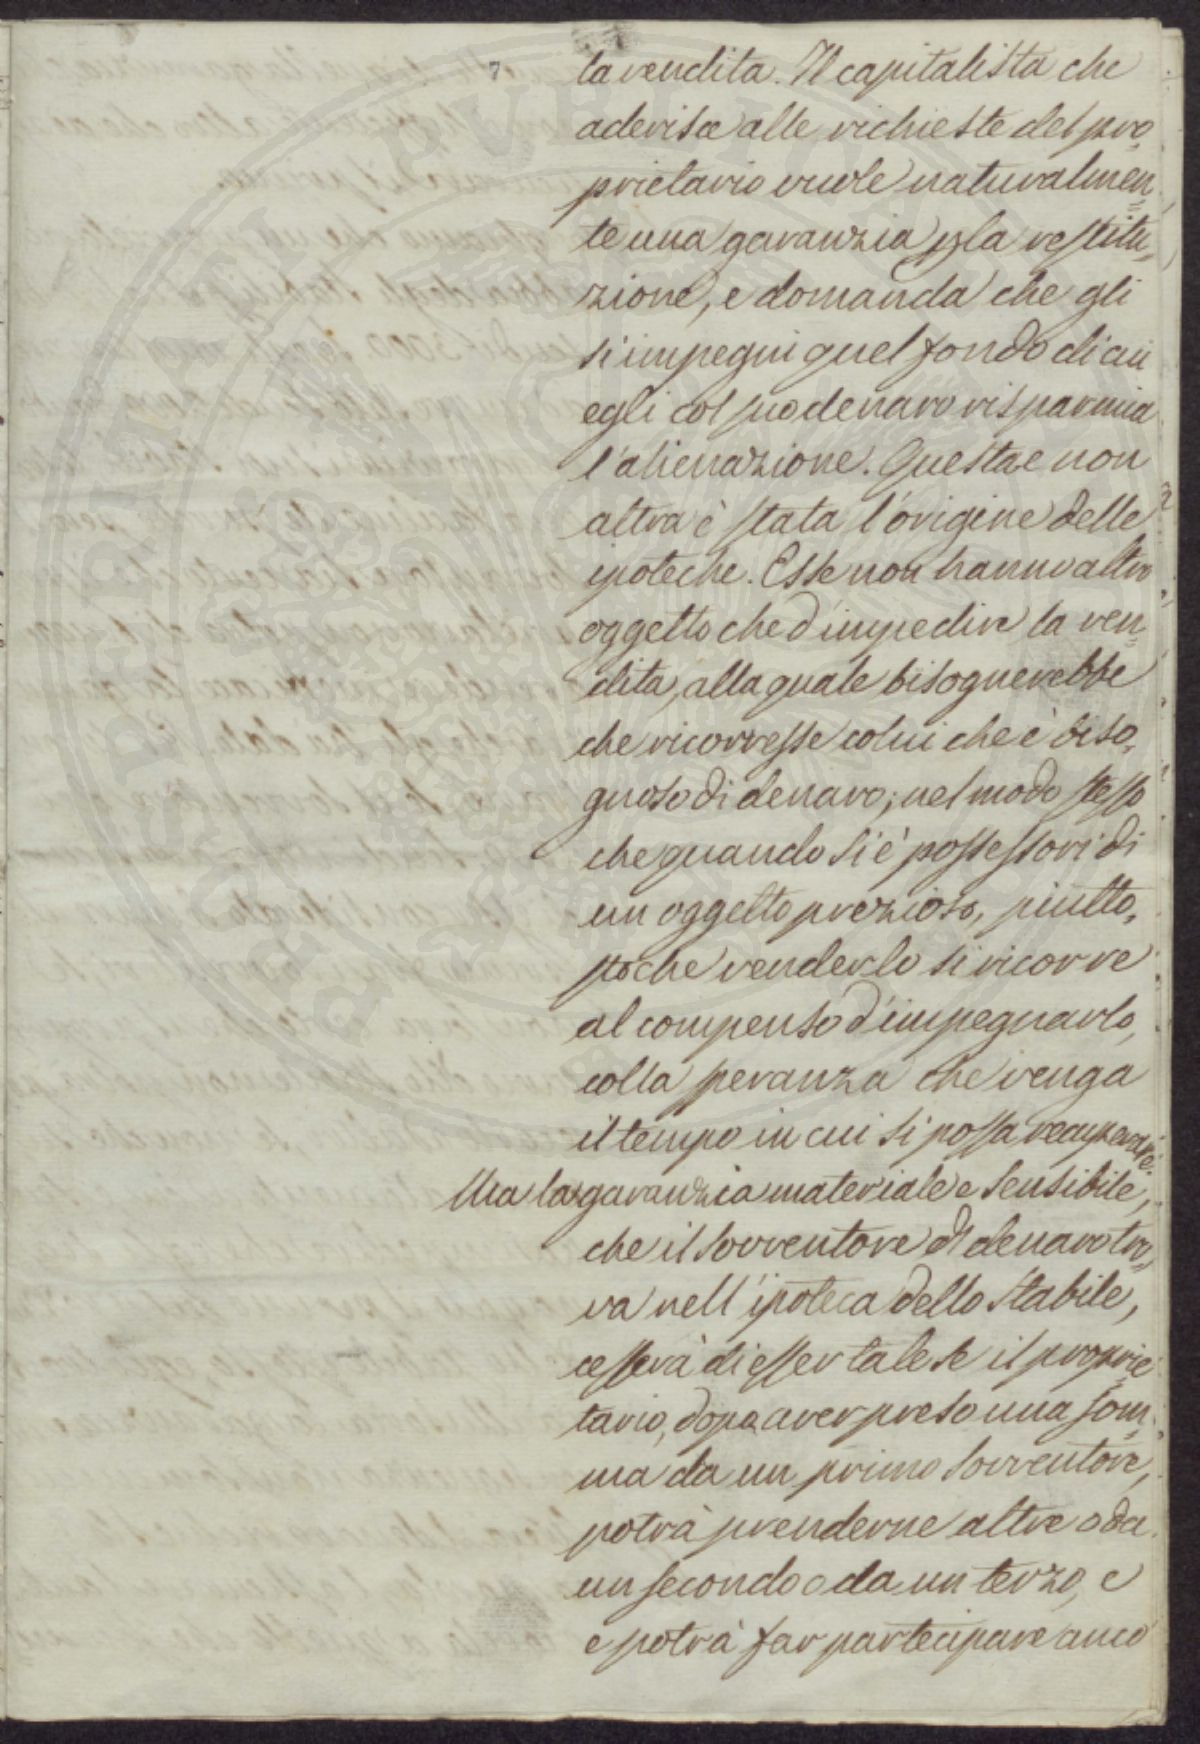 7
la vendita. Il capitalista che
aderisce alle richieste del pro=
prietario vuole naturalmen=
te una garanzia pla restitu=
zione, e domanda che gli
si impegni quel fondo di cui
egli col suo denaro risparmia
l'alienazione. Questa e non
altra è stata l'origine delle
ipoteche. Esse non hanno altro
oggetto che d'impedire la ven=
dita, alla quale bisognerebbe
che ricorresse colui che è biso=
gnoso di denaro; nel modo stesso
che quando si è possessori di
un oggetto prezioso, piutto=
sto che venderlo si ricorre
al compenso d'impegnarlo,
colla speranza che venga
il tempo in cui si possa recuperare.
Ma la garanzia materiale e sensibile,
che il sovventore di denaro tro=
va nell'ipoteca dello stabile,
cesserà di esser tale se il proprie=
tario, dopo aver preso una som=
ma da un primo sovventore,
potrà prenderne altre o da
un secondo o da un terzo, e
e potrà far partecipare anco
PUBLICA